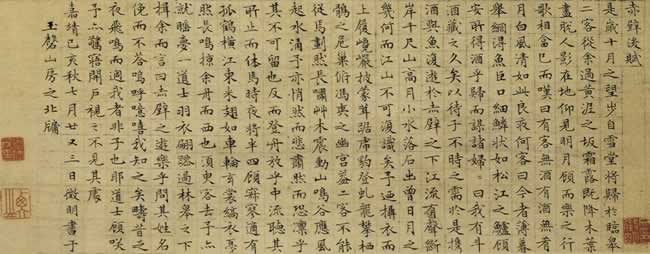 赤壁後賦
是歲十月之望步自雪堂將歸於臨皋
二客從余過黃泥之坂霜露既降木葉
盡脫人影在地仰見明月顧而樂之行
歌相畣已而嘆曰有客無酒有酒無肴
月白風清如此良夜何客曰今者薄暮
舉網得魚巨口細鱗狀如松江之鱸顧
安所得酒乎歸而謀諸婦〻曰我有斗
酒藏之久矣以待子不時之需於是携
酒與魚復遊於赤壁之下江流有聲斷
岸千尺山高月小水落石出曾日月之
幾何而江山不可復識矣予迺攝衣而
上履巉巖披蒙茸踞虎豹登虬龍攀栖
鶻之危巢俯馮夷之幽宮蓋二客不能
從焉劃然長嘯草木震動山鳴谷應風
起水涌予亦悄然而悲肅然而恐凜乎
其不可留也反而登舟放乎中流聽其
所止而休焉時夜將半四顧寂寥適有
孤鶴橫江東來翅如車輪玄裳縞衣戛
然長鳴掠余舟而西也須臾客去予亦
就睡夢一道士羽衣翩躚過林皋之下
揖余而言曰赤壁之遊樂乎問其姓名
俛而不答嗚呼噫嘻我知之矣疇昔之
夜飛鳴而過我者非子也耶道士顧咲
予亦驚寤開戶視之不見其處
嘉靖己亥秋七月廿又三日徵明書于
玉磬山房之北牖